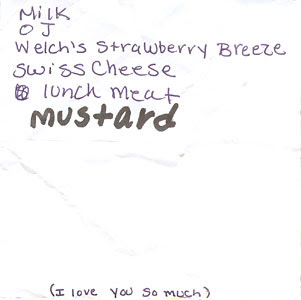 Milk
OJ
Welch's Strawberry Breeze
Swiss Cheese
lunch meat
mustard
(I love you so much)